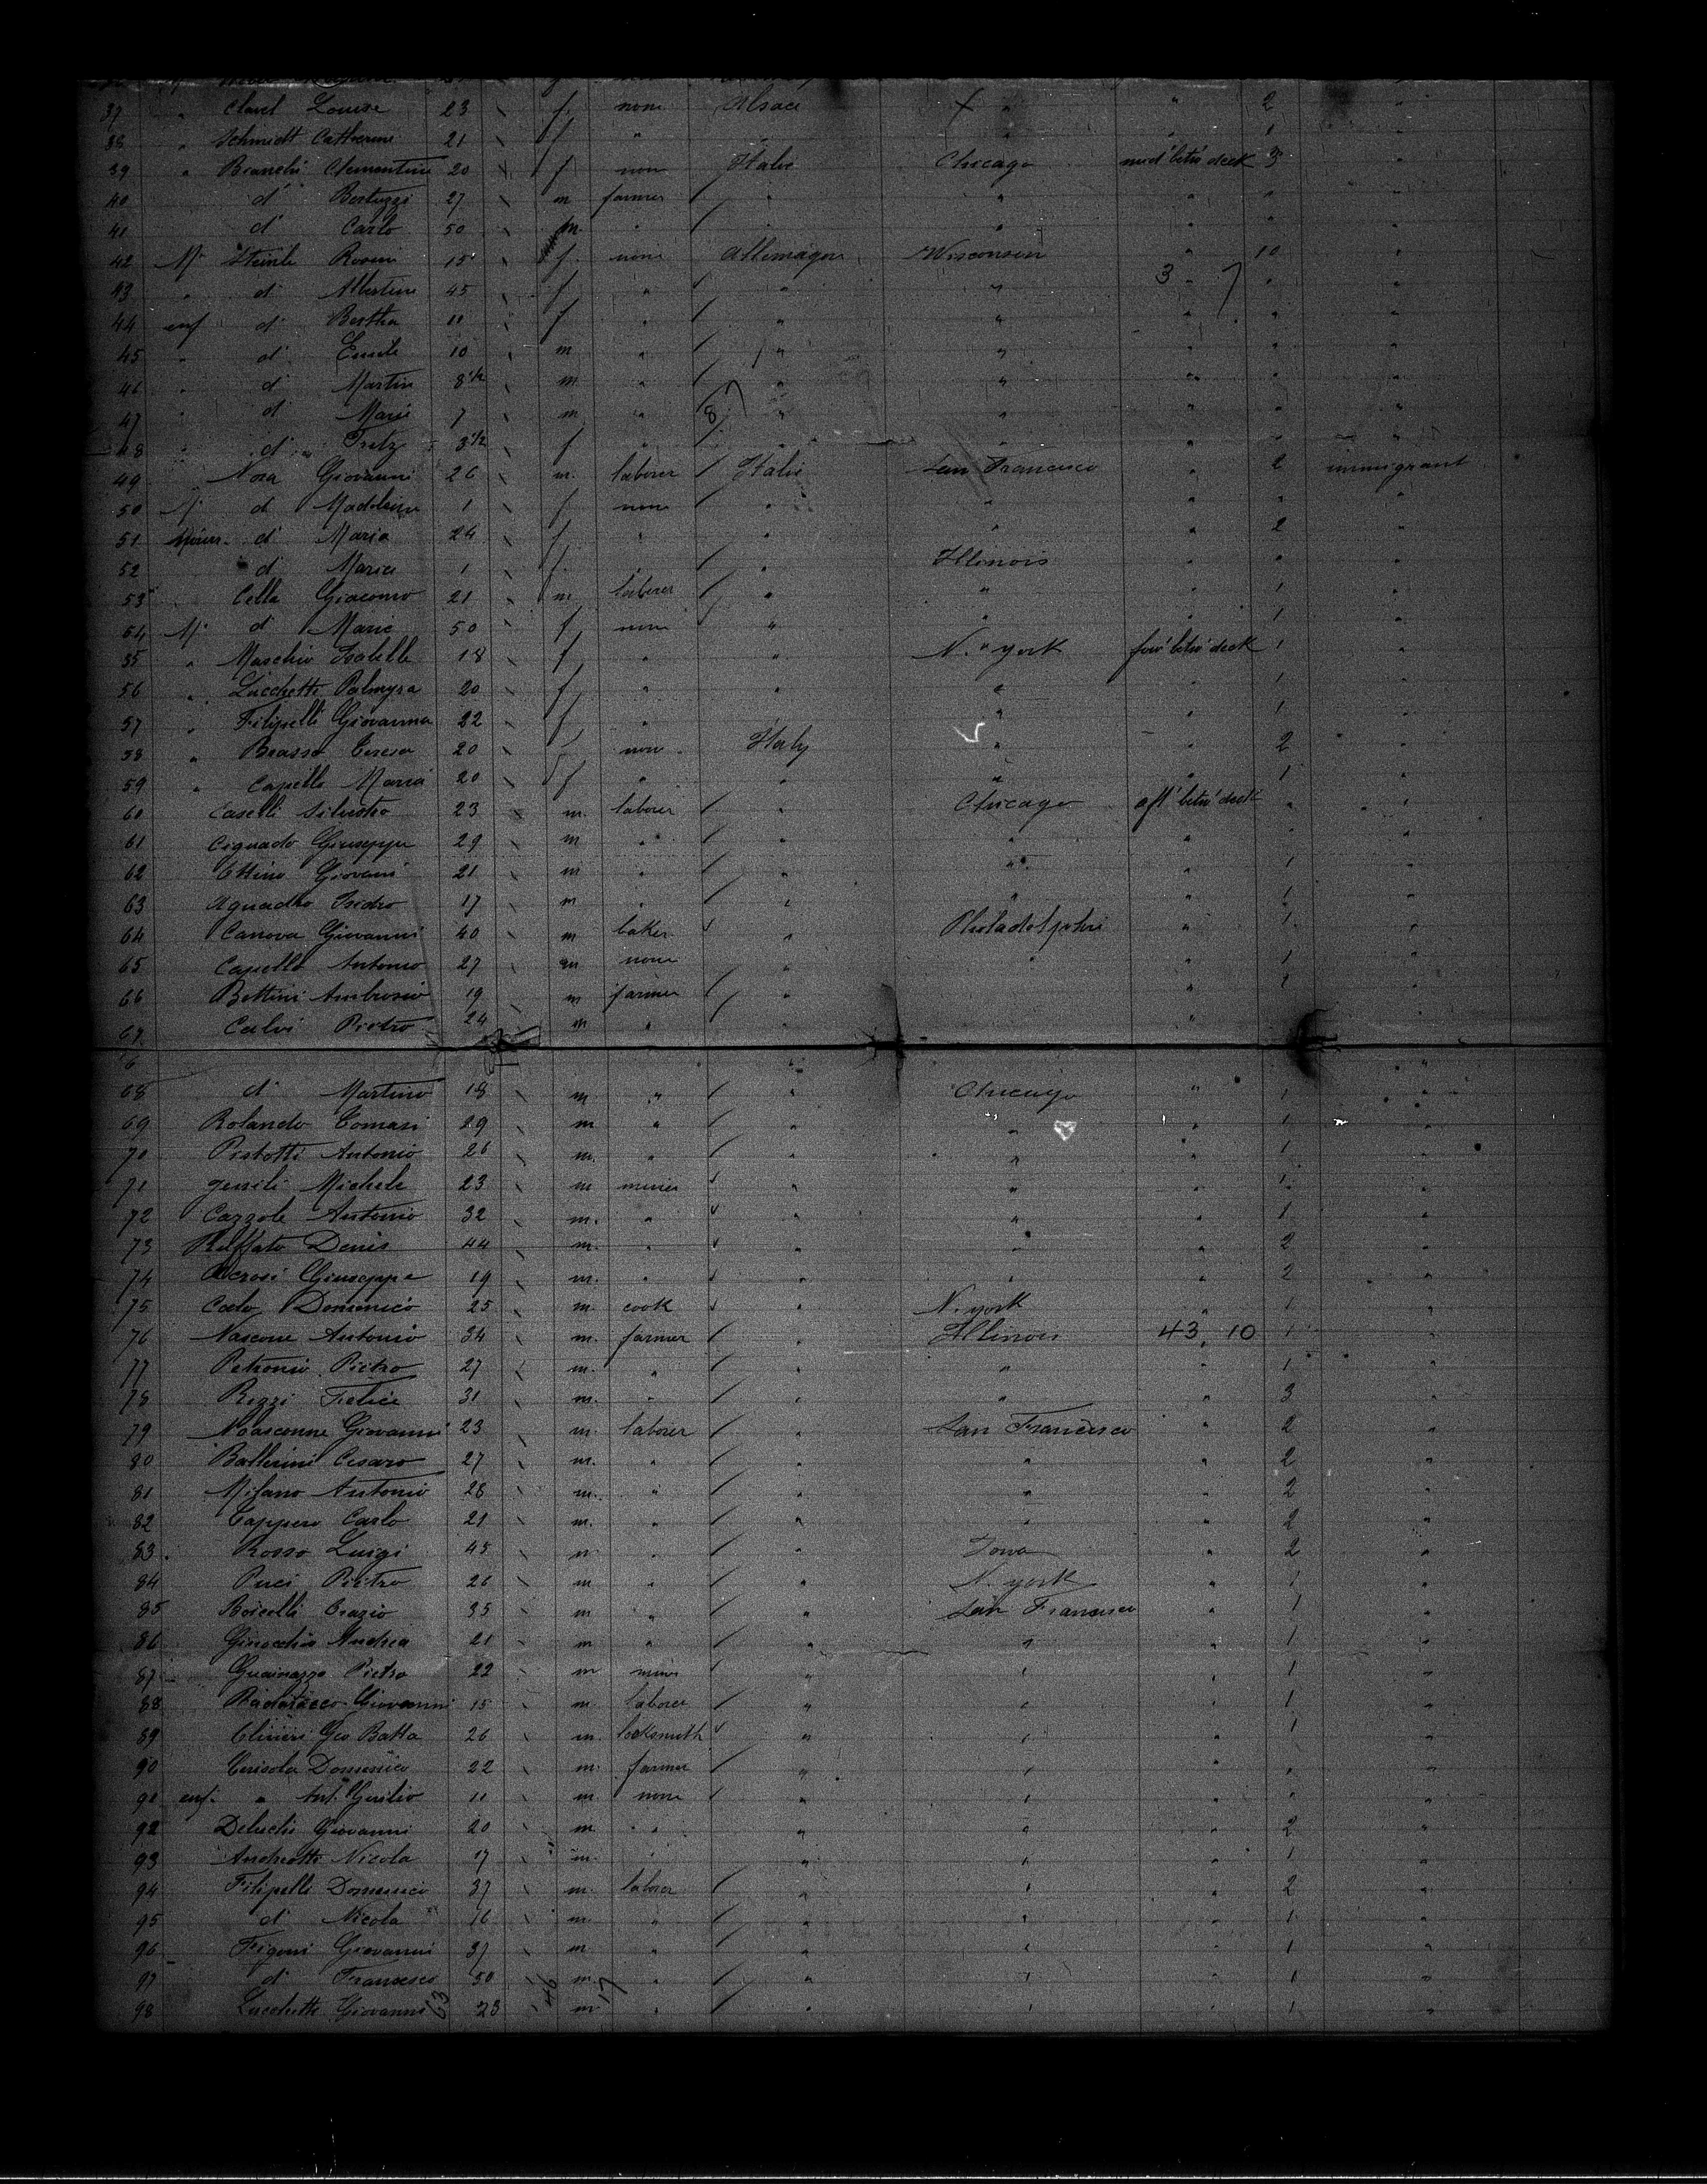 37 " Clavel Louise 23 \ f none Alsace " " 2 "
38 " Schmidt Catherine 21 \ f " " " " 1 "
39 " Bianchi Clementine 20 \ f non Italie Chicago mid' betw' deck 3 "
40 d° Bertuzzi 27 \ m farmer / " " " " "
41 d° Carlo 50 \ m " / " " " " "
42 Steinle Rosine 15 f. none Allemagne Wisconsin " 10 "
43 " d° Albertine 45 \ f " " " 3 - 7 " "
44 enf d° Bertha 11 f " / " " " " "
45 " d° Emile 10 m " / " " " " "
46 " d° Martin 8 1/2 m " / " " " " "
47 " d° Marie 7 \ m " 8 " " " " "
48 " d° Fritz 3 1/2 f " " " " " "
49 Nora Giovanni 26 \ m. laborer / Italie San Francisco " 2 immigrant
50 d° Madeleine 1 \ f none " " " " "
51 d° Maria 24 \ f " " " " 2 "
52 d° Maria 1 \ f. " / " Illinois " " "
53 Cella Giacomo 21 \ m laborer / " " " 1 "
54 d° Marie 50 \ f none " " " 1 "
55 " Maschio Isabelle 18 \ f " " N. York for' betw' deck 1 "
56 " Lucchetti Palmyra 20 \ f " " " " 1 "
57 " Filipelli Giovanna 22 \ f " " " " 1 "
58 " Brasso Teresa 20 \ non Italy " " 2 "
59 " Capello Maria 20 \ f " " " " 1 "
60 Caselli Silvestro 23 \ m. laborer / " Chicago aft' betw' deck " "
61 Ciguado Giuseppe 29 \ m " / " " " " "
62 Giovanni 21 \ m " / " " " 1 "
63 Aguadro Isidro 17 \ m " / " " " 1 "
64 Canova Giovanni 40 \ m baker " Philadelphie " 1 "
65 Capello Antonio 27 m none " " " 1 "
66 Bettini Ambrosio 19 m farmer / " " "
67 Calvi Pietro 24 m " / " "
68 d° Martino 18 \ m " / " Chicago " 1 "
69 Rolando Tomasi 29 \ m " / " " " 1 "
70 Pistotti Antonio 26 \ m. " / " " " 1 "
71 Gentili Michele 23 \ m miner " " " 1 "
72 Cazzole Antonio 32 \ m. " " " " 1 "
73 Ruffato Denis 44 \ m. " " " " 2 "
74 Giuseppe 19 \ m. " " " " 2 "
75 Calo Domenico 25 \ m cook " N. York " 1 "
76 Nascone Antonio 34 \ m. farmer / " Illinois 43, 10 1 "
77 Petronio Pietro 27 \ m. " / " " " 1 "
78 Rizzi Felice 31 \ m. " / " " " 3 "
79 Giovanni 23 m. laborer / " San Francisco " 2 "
80 Ballerini Cesaro 27 \ m. " / " " " 2 "
81 Milano Antonio 28 \ m. " / " " " 2 "
82 Tappero Carlo 21 \ m. " / " " " 2 "
83 Rosso Luigi 45 \ m " / " Iowa " 2 "
84 Puci Pietro 26 \ m " / " N. York " 1 "
85 Orazio 35 \ m " / " San Francisco " 1 "
86 Ginocchio Andrea 21 \ m " / " " " 1 "
87 Pietro 22 m miner / " " " 1 "
88 Giovanni 15 \ m. laborer / " " " 1 "
89 Olivieri Gio Batta 26 \ m. locksmith " " " 1 "
90 Cerisola Domenico 22 \ m. farmer / " " " " "
91 enf. " 11 \ m none " " " " "
92 Delucchi Giovanni 20 \ m " " " " 2 "
93 Andreotti Nicola 17 m. " " " " 1 "
94 Filipelli Domenico 37 \ m. laborer / " " " 2 "
95 d° Nicola 16 \ m. " / " " " 1 "
96 Frigoni Giovanni 37 \ m " / " " " 1 "
97 d° Francesco 50 \ m. " / " " " 1 "
98 Lucchetti Giovanni 23 \ m " / " " " 1 "
63 46 17